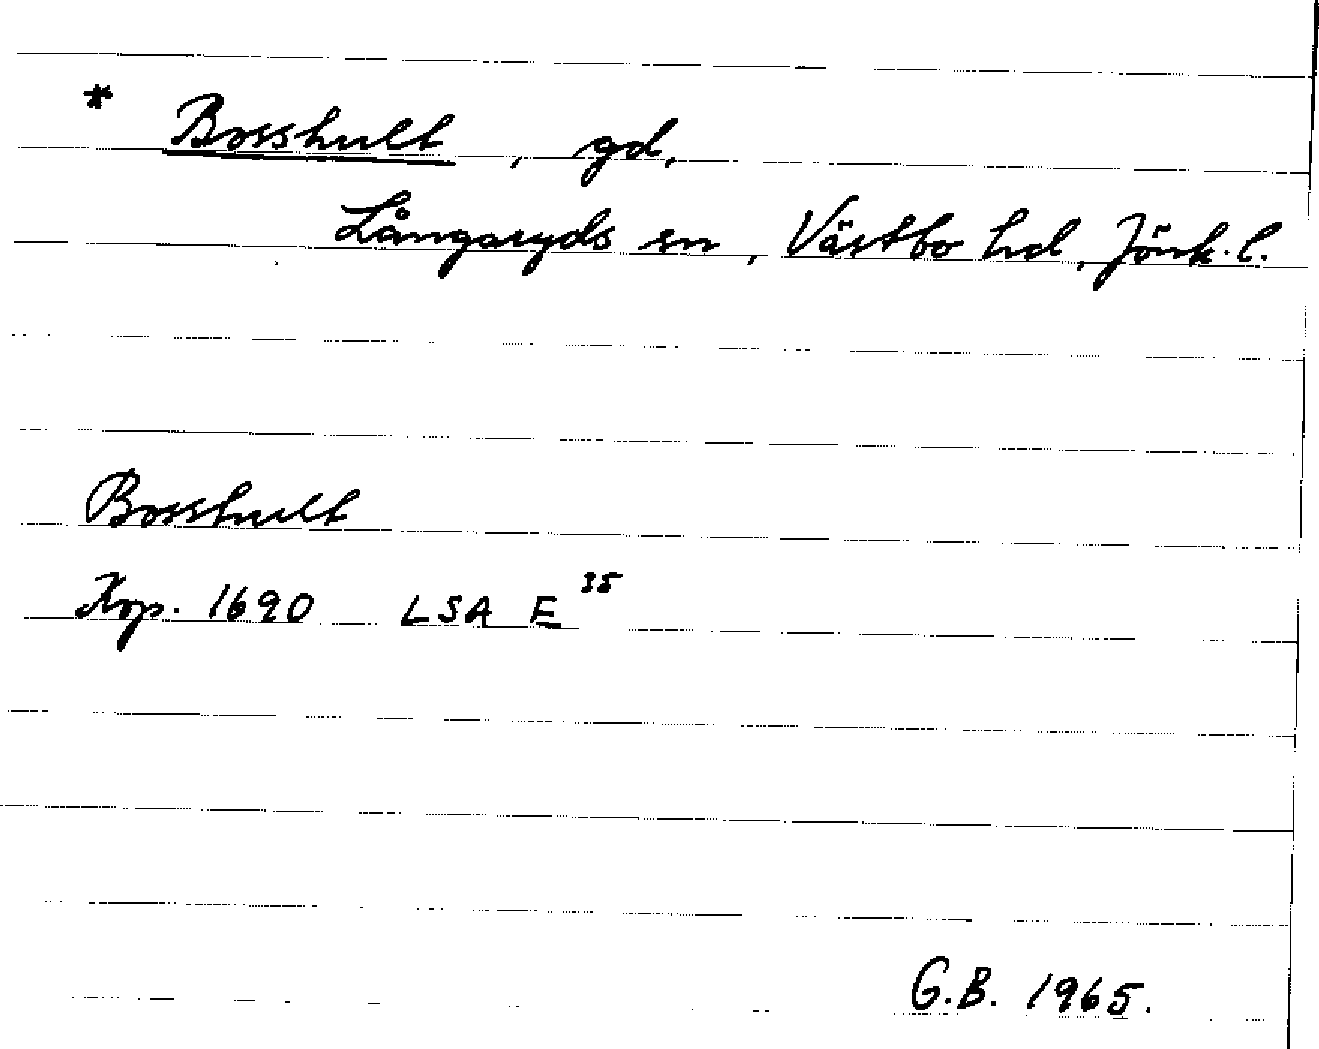 * Bosshult, gd,
Långaryds sn, Västbo hd, Jönk. l.
Bosshult
Kop. 1690 LSA E 35
G.B. 1965.